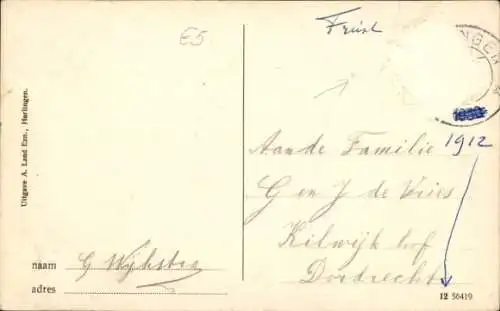 E5
Uitgave A. Land Ezn., Harlingen.
naam G Wijhstra
adres
NGEN
1912
Aan de Familie
G en J de Vries
Kilwijk hof
Dordrecht
12 56419